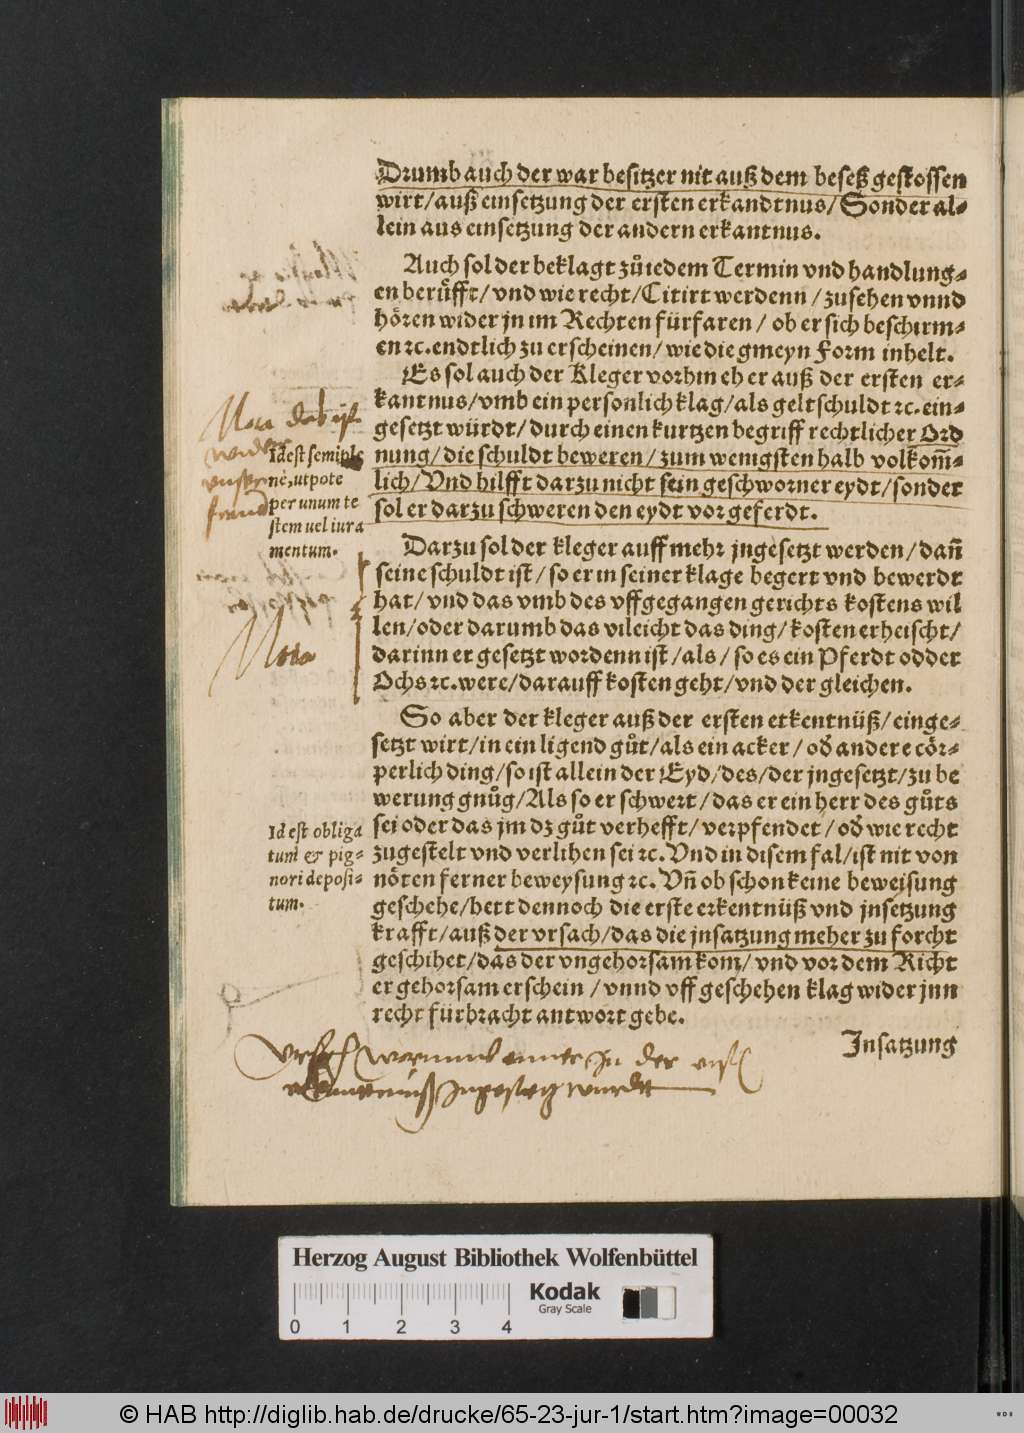 Drumb auch der war besitzer nit auß dem beseß gestossen
wirt/auß einsetzung der ersten erkandtnus/Sonder al-
lein aus einsetzung der andern erkantnus.
Auch sol der beklagt zůiedem Termin vnd handlung-
en berüfft/vnd wie recht/Citirt werdenn/zusehen vnnd
hören wider jn im Rechten fürfaren/ob er sich beschirm-
en ꝛc. endtlich zu erscheinen/wie die gmeyn Form inhelt.
Es sol auch der Kleger vorhin eh er auß der ersten er-
kantnus/vmb ein personlich klag/als geltschuldt ꝛc. ein-
gesetzt würdt/durch einen kurtzen begriff rechtlicher Ord
nung/die schuldt beweren/zum wenigsten halb volkom̄-
lich/Vnd hilfft darzu nicht sein geschworner eydt/sonder
sol er darzu schweren den eydt vor geferdt.
Nota das ist
wider
Id est semiple
nè, utpote
per unum te
stem uel iura
mentum.
Darzu sol der kleger auff mehr jngesetzt werden/dañ
seine schuldt ist/so er in seiner klage begert vnd bewerdt
hat/vnd das vmb des vffgegangen gerichts kostens wil
len/oder darumb das vileicht das ding/kosten erheischt/
darinn er gesetzt wordenn ist/als/so es ein Pferdt odder
Ochs ꝛc. were/darauff kosten geht/vnd der gleichen.
Nota
So aber der kleger auß der ersten erkentnüß/einge-
setzt wirt/in ein ligend gůt/als ein acker/oď andere cör-
perlich ding/so ist allein der Eyd/des/der jngesetzt/zu be
werung gnůg/Als so er schwert/das er ein herr des gůts
sei oder das jm dz gůt verhefft/verpfendet/oď wie recht
zugestelt vnd verlihen sei ꝛc. Vnd in disem fal/ist nit von
nöten ferner beweysung ꝛc. Vñ ob schon keine beweisung
geschehe/hett dennoch die erste erkentnüß vnd jnsetzung
krafft/auß der vrsach/das die jnsatzung meher zu forcht
geschihet/das der vngehorsam kom/vnd vor dem Richt
er gehorsam erschein/vnnd vff geschehen klag wider jnn
recht fürbracht antwort gebe.
Id est obliga
tum & pig-
nori deposi-
tum.
Jnsatzung
Vrsach warumb einer In der erst
erkantnuß Ingesetz wurdt
Herzog August Bibliothek Wolfenbüttel
Kodak
Gray Scale
0 1 2 3 4
© HAB http://diglib.hab.de/drucke/65-23-jur-1/start.htm?image=00032